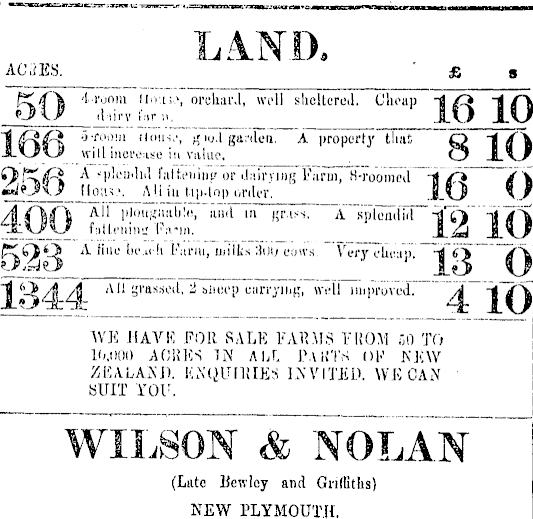 LAND.
ACRES. £ s
50 4-room House, orchard, well sheltered. Cheap 16 10
dairy farm.
166 5-room House, good garden. A property that 8 10
will increase in value.
256 A splendid fattening or dairying Farm, 8-roomed 16 0
House. All in tip-top order.
400 All ploughable, and in grass. A splendid 12 10
fattening Farm.
523 A fine beach Farm, milks 300 cows. Very cheap. 13 0
1344 All grassed, 2 sheep carrying, well improved. 4 10
WE HAVE FOR SALE FARMS FROM 50 TO
10,000 ACRES IN ALL PARTS OF NEW
ZEALAND. ENQUIRIES INVITED. WE CAN
SUIT YOU.
WILSON & NOLAN
(Late Bewley and Griffiths)
NEW PLYMOUTH.